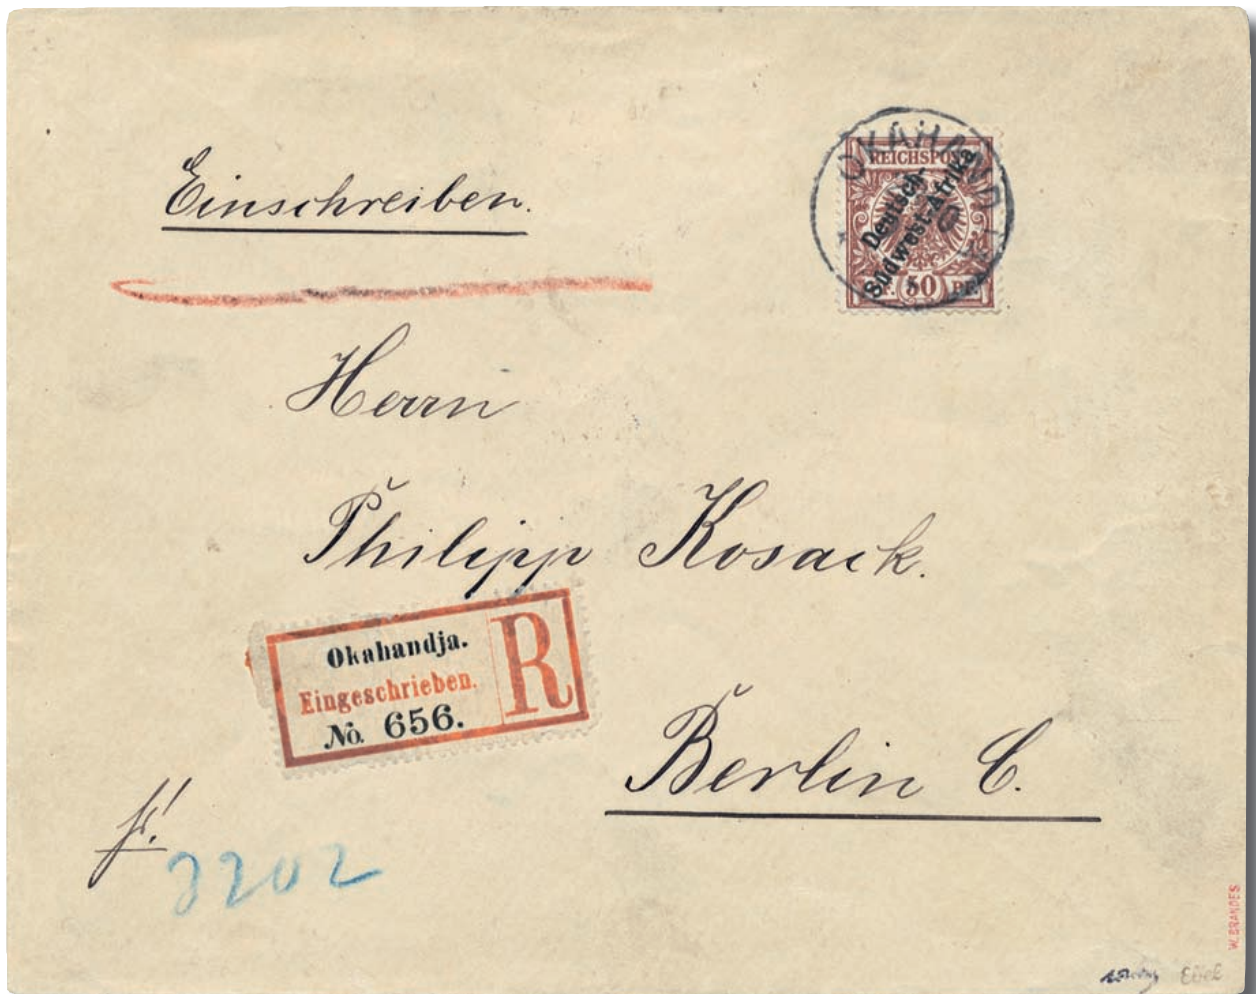 Einschreiben.
OKAHANDJA
REICHSPOST
Deutsch-
Südwest-Afrika
50 PF.
Herrn
Philipp Kosack.
Okahandja.
Eingeschrieben.
No. 656.
R
Berlin C.
fr!
3202
W. BRANDES